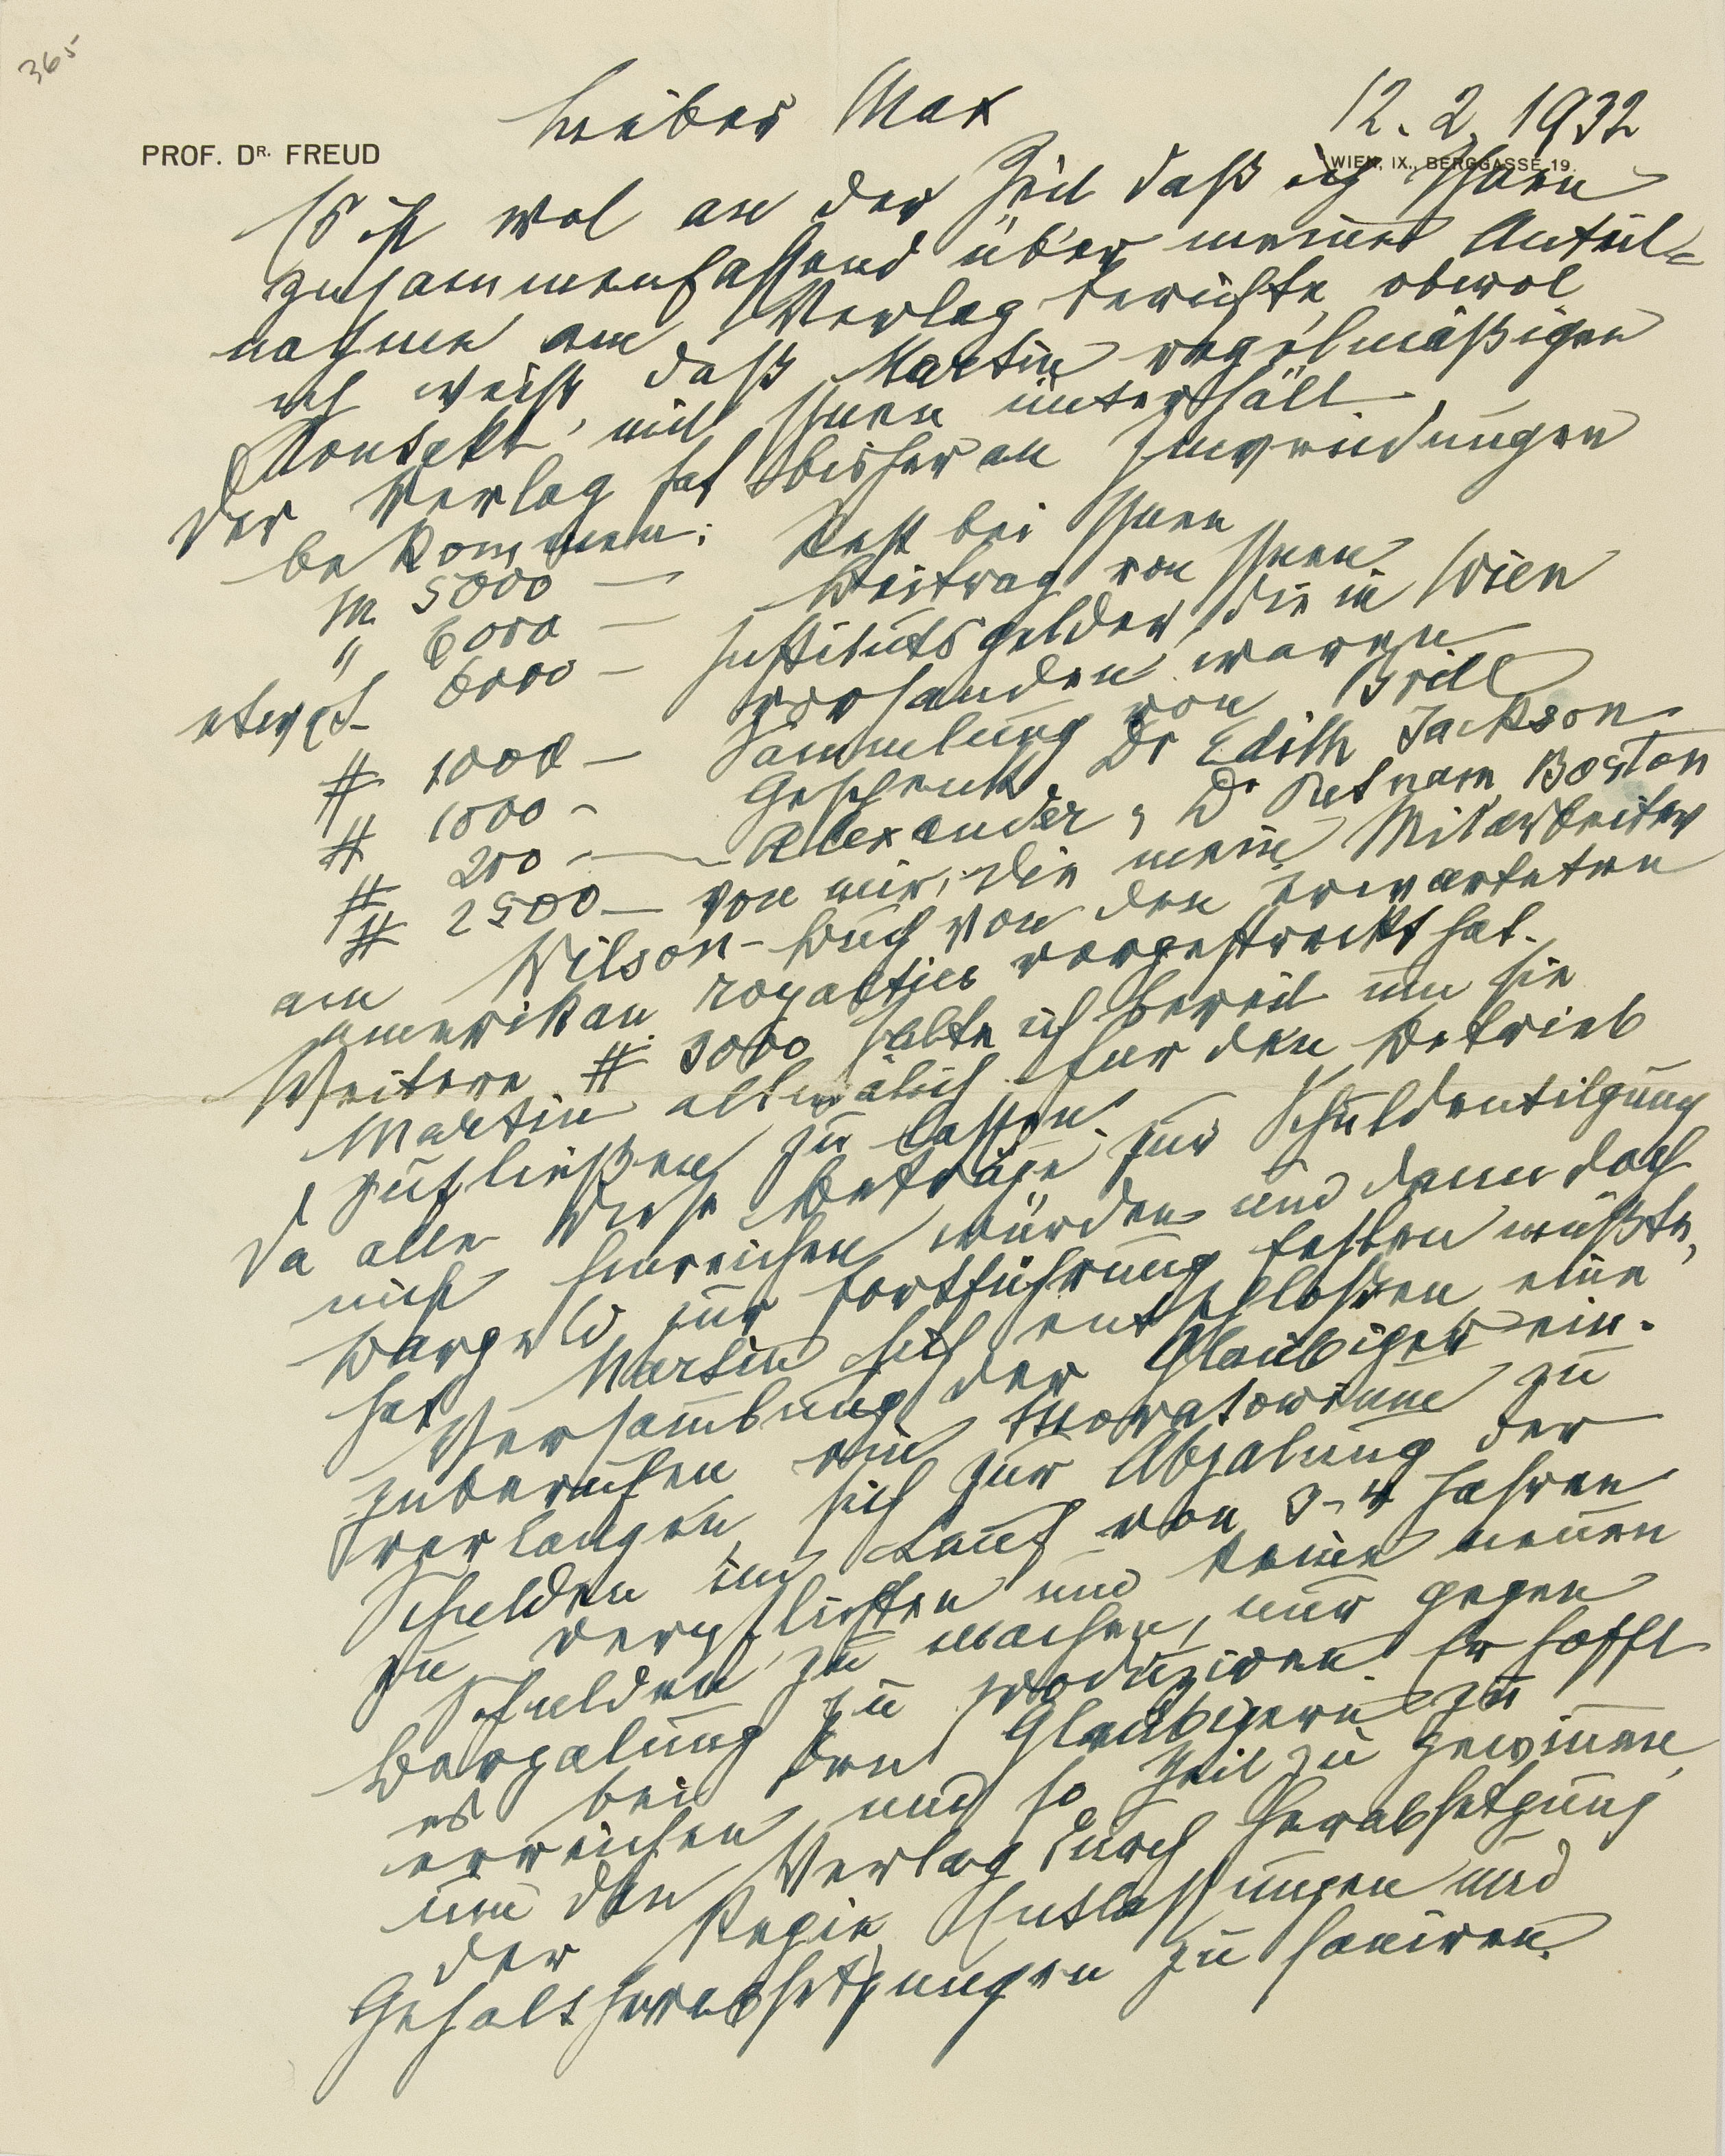 365
PROF. DR. FREUD
WIEN, IX., BERGGASSE 19.
12. 2. 1932
Lieber Max
Es ist wol an der Zeit daß ich Ihnen
zusammenfassend über meine Anteil-
nahme am Verlag berichte, obwol
ich weiß, daß Martin regelmäßigen
Kontakt mit Ihnen unterhält.
Der Verlag hat bisher an Zuwendungen
bekommen:
M 5000 — Rest bei Ihnen
" 6000 — Beitrag von Ihnen
etwa S 6000 — Institutsgelder, die in Wien
vorhanden waren
# 1000 — Sammlung von Brill
# 1000 — Geschenk Dr Edith Jackson
# 200 — Alexander, Dr Putnam Boston
# 2500 — von mir, die mein Mitarbeiter
am Wilson-Buch von den erwarteten
amerikan. royalties vorgestreckt hat.
Weitere # 3000 halte ich bereit um sie
Martin allmälich für den Betrieb
zufließen zu lassen.
Da alle diese Beträge zur Schuldentilgung
nicht hinreichen würden und dann doch
Bargeld zur Fortführung fehlen müßte,
hat Martin sich entschlossen eine
Versammlung der Gläubiger ein-
zuberufen ein Moratorium zu
verlangen, sich zur Abzalung der
Schulden im Lauf von 3-4 Jahren
zu verpflichten und keine neuen
Schulden zu machen, nur gegen
Barzalung zu produziren. Er hofft
es bei den Gläubigern zu
erreichen und so Zeit zu gewinnen,
um den Verlag durch Herabsetzung
der Regie, Entlassungen und
Gehaltsherabsetzungen zu saniren.